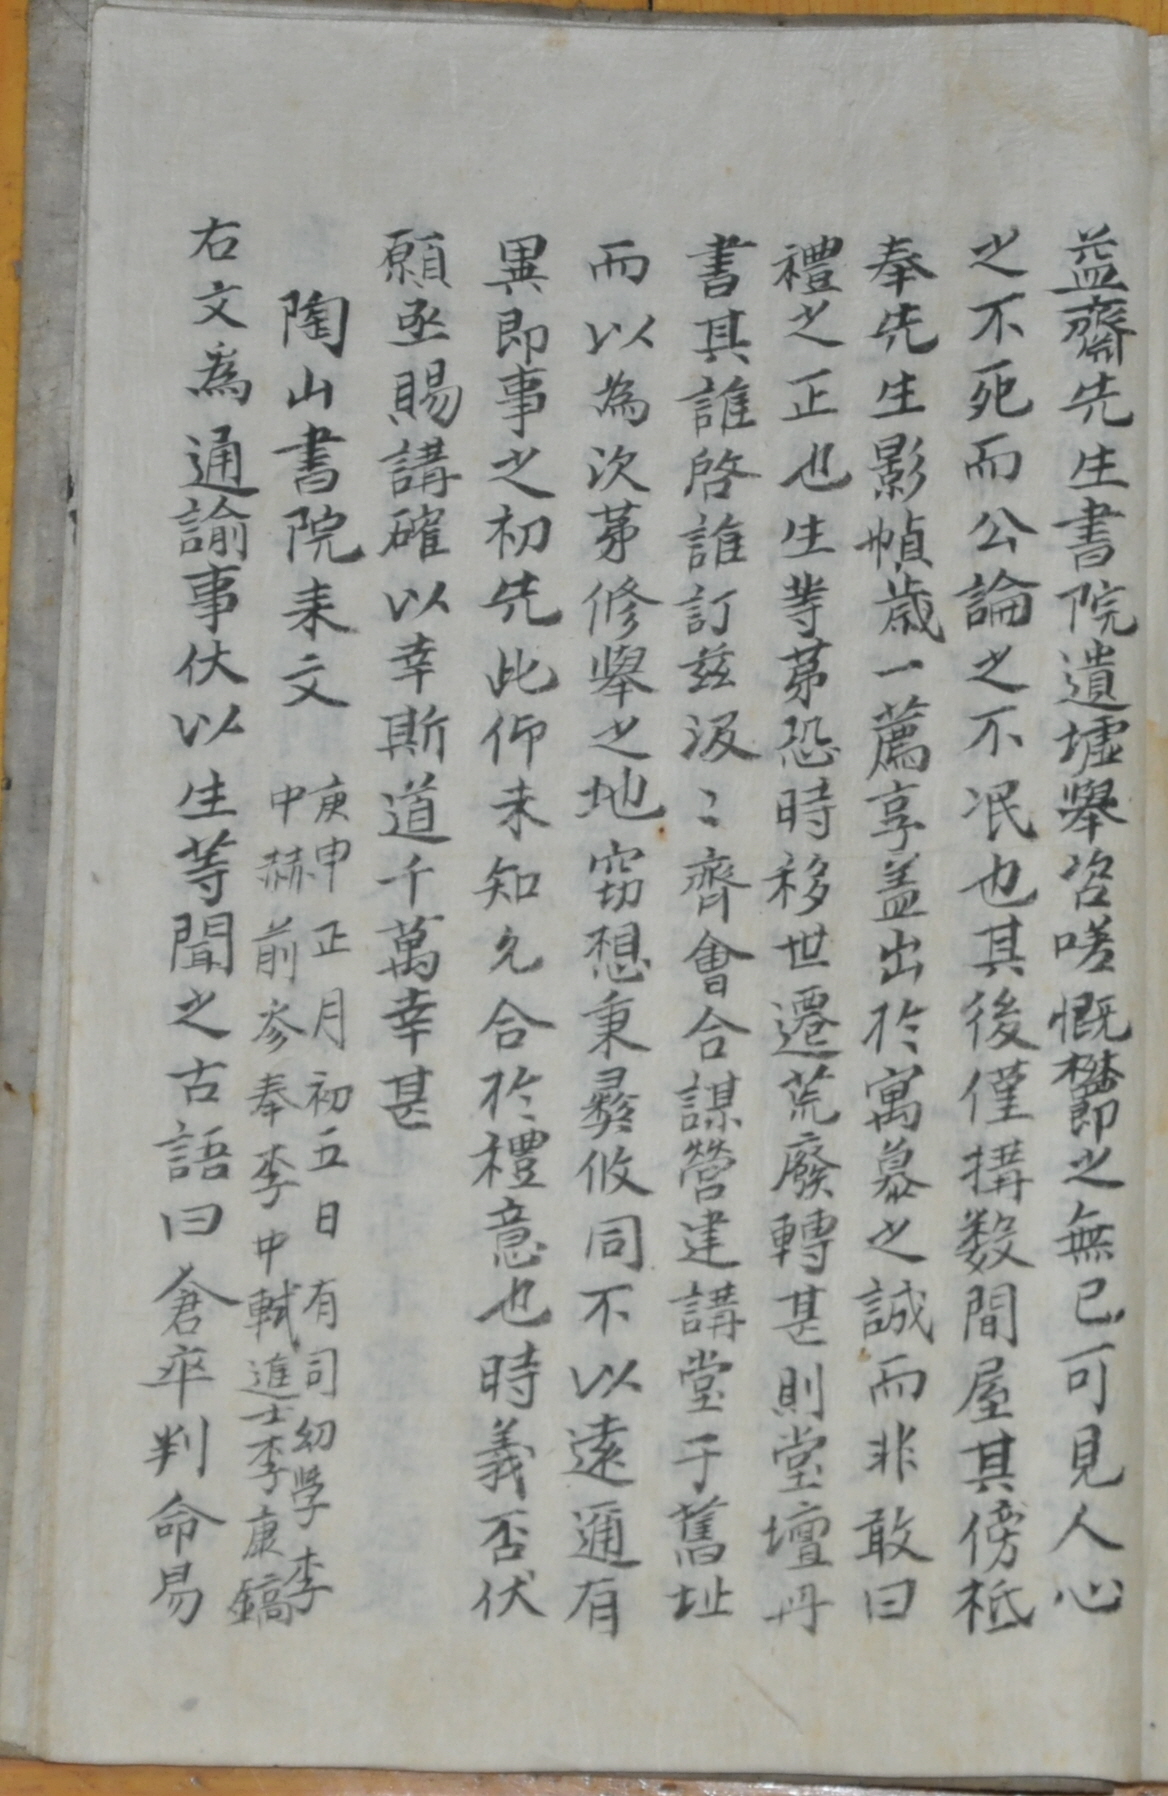 益齋先生書院遺墟舉咨嗟慨欝即之無已可見人心
之不死而公論之不泯也其後僅搆数間屋其傍祗
奉先生影幀歲一薦享盖出於寓慕之誠而非敢曰
禮之正也生等第恐時移世遷荒廢轉甚則堂壇丹
書其誰啓誰訂玆汲〻齊會合謀營建講堂于舊址
而以為次茅修舉之地窃想秉彛攸同不以遠邇有
異即事之初先此仰未知允合於禮意也時義否伏
願亟賜講確以幸斯道千萬幸甚
陶山書院来文 庚申正月初五日有司幼學李
中赫前參奉李中軾進士李康鎬
右文為通諭事伏以生等聞之古語曰倉卒判命易